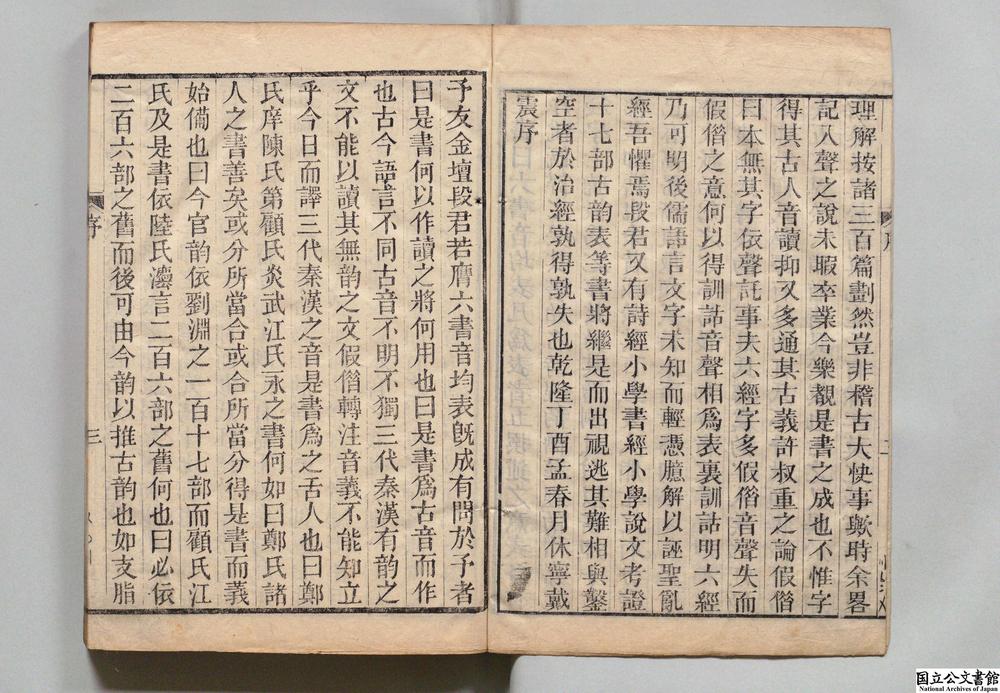 理解按諸三百篇劃然豈非稽古大快事歟時余畧
記入聲之說未暇卒業今樂覩是書之成也不惟字
得其古人音讀抑又多通其古義許叔重之論假借
曰本無其字依聲託事夫六經字多假借音聲失而
假借之意何以得訓詁音聲相爲表裏訓詁明六經
乃可明後儒語言文字未知而輕憑臆解以誣聖亂
經吾懼焉段君又有詩經小學書經小學說文考證
十七部古韵表等書將繼是而出視逃其難相與鑿
空者於治經孰得孰失也乾隆丁酉孟春月休寧戴
震序
序
二
予友金壇段君若膺六書音均表旣成有問於予者
曰是書何以作讀之將何用也曰是書爲古音而作
也古今語言不同古音不明不獨三代秦漢有韵之
文不能以讀其無韵之文假借轉注音義不能知立
乎今日而譯三代秦漢之音是書爲之舌人也曰鄭
氏庠陳氏第顧氏炎武江氏永之書何如曰鄭氏諸
人之書善矣或分所當合或合所當分得是書而義
始備也曰今官韵依劉淵之一百十七部而顧氏江
氏及是書依陸氏灋言二百六部之舊何也曰必依
二百六部之舊而後可由今韵以推古韵也如支脂
序
三
国立公文書館
National Archives of Japan